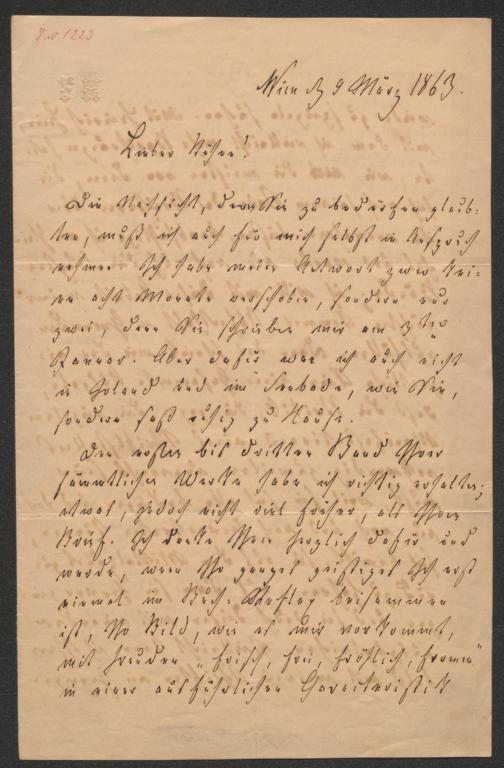 J.N. 1223
Wien d 9 März 1863.
Lieber Küher!
Die Nachsicht, deren Sie zu bedürfen glaub-
ten, muß ich auch für mich selbst in Anspruch
nehmen. Ich habe meine Antwort zwar kei-
ne acht Monate verschoben, sondern nur
zwei, denn Sie schrieben mir am 3ten
Januar. Aber dafür war ich auch nicht
in und im Seebade, wie Sie,
sondern saß ruhig zu Hause.
Den ersten bis dritten Band Ihrer
sämmtlichen Werke habe ich richtig erhalten;
etwas, jedoch nicht viel früher, als Ihren
Brief. Ich danke Ihnen herzlich dafür und
werde, wenn Ihr ganzes geistiges Ich erst
einmal im Buch- beisammen
ist, Ihr Bild, wie es mir vorkommt,
mit Freuden "frisch, frei, fröhlich, fromm"
in einer ausführlichen Characteristik